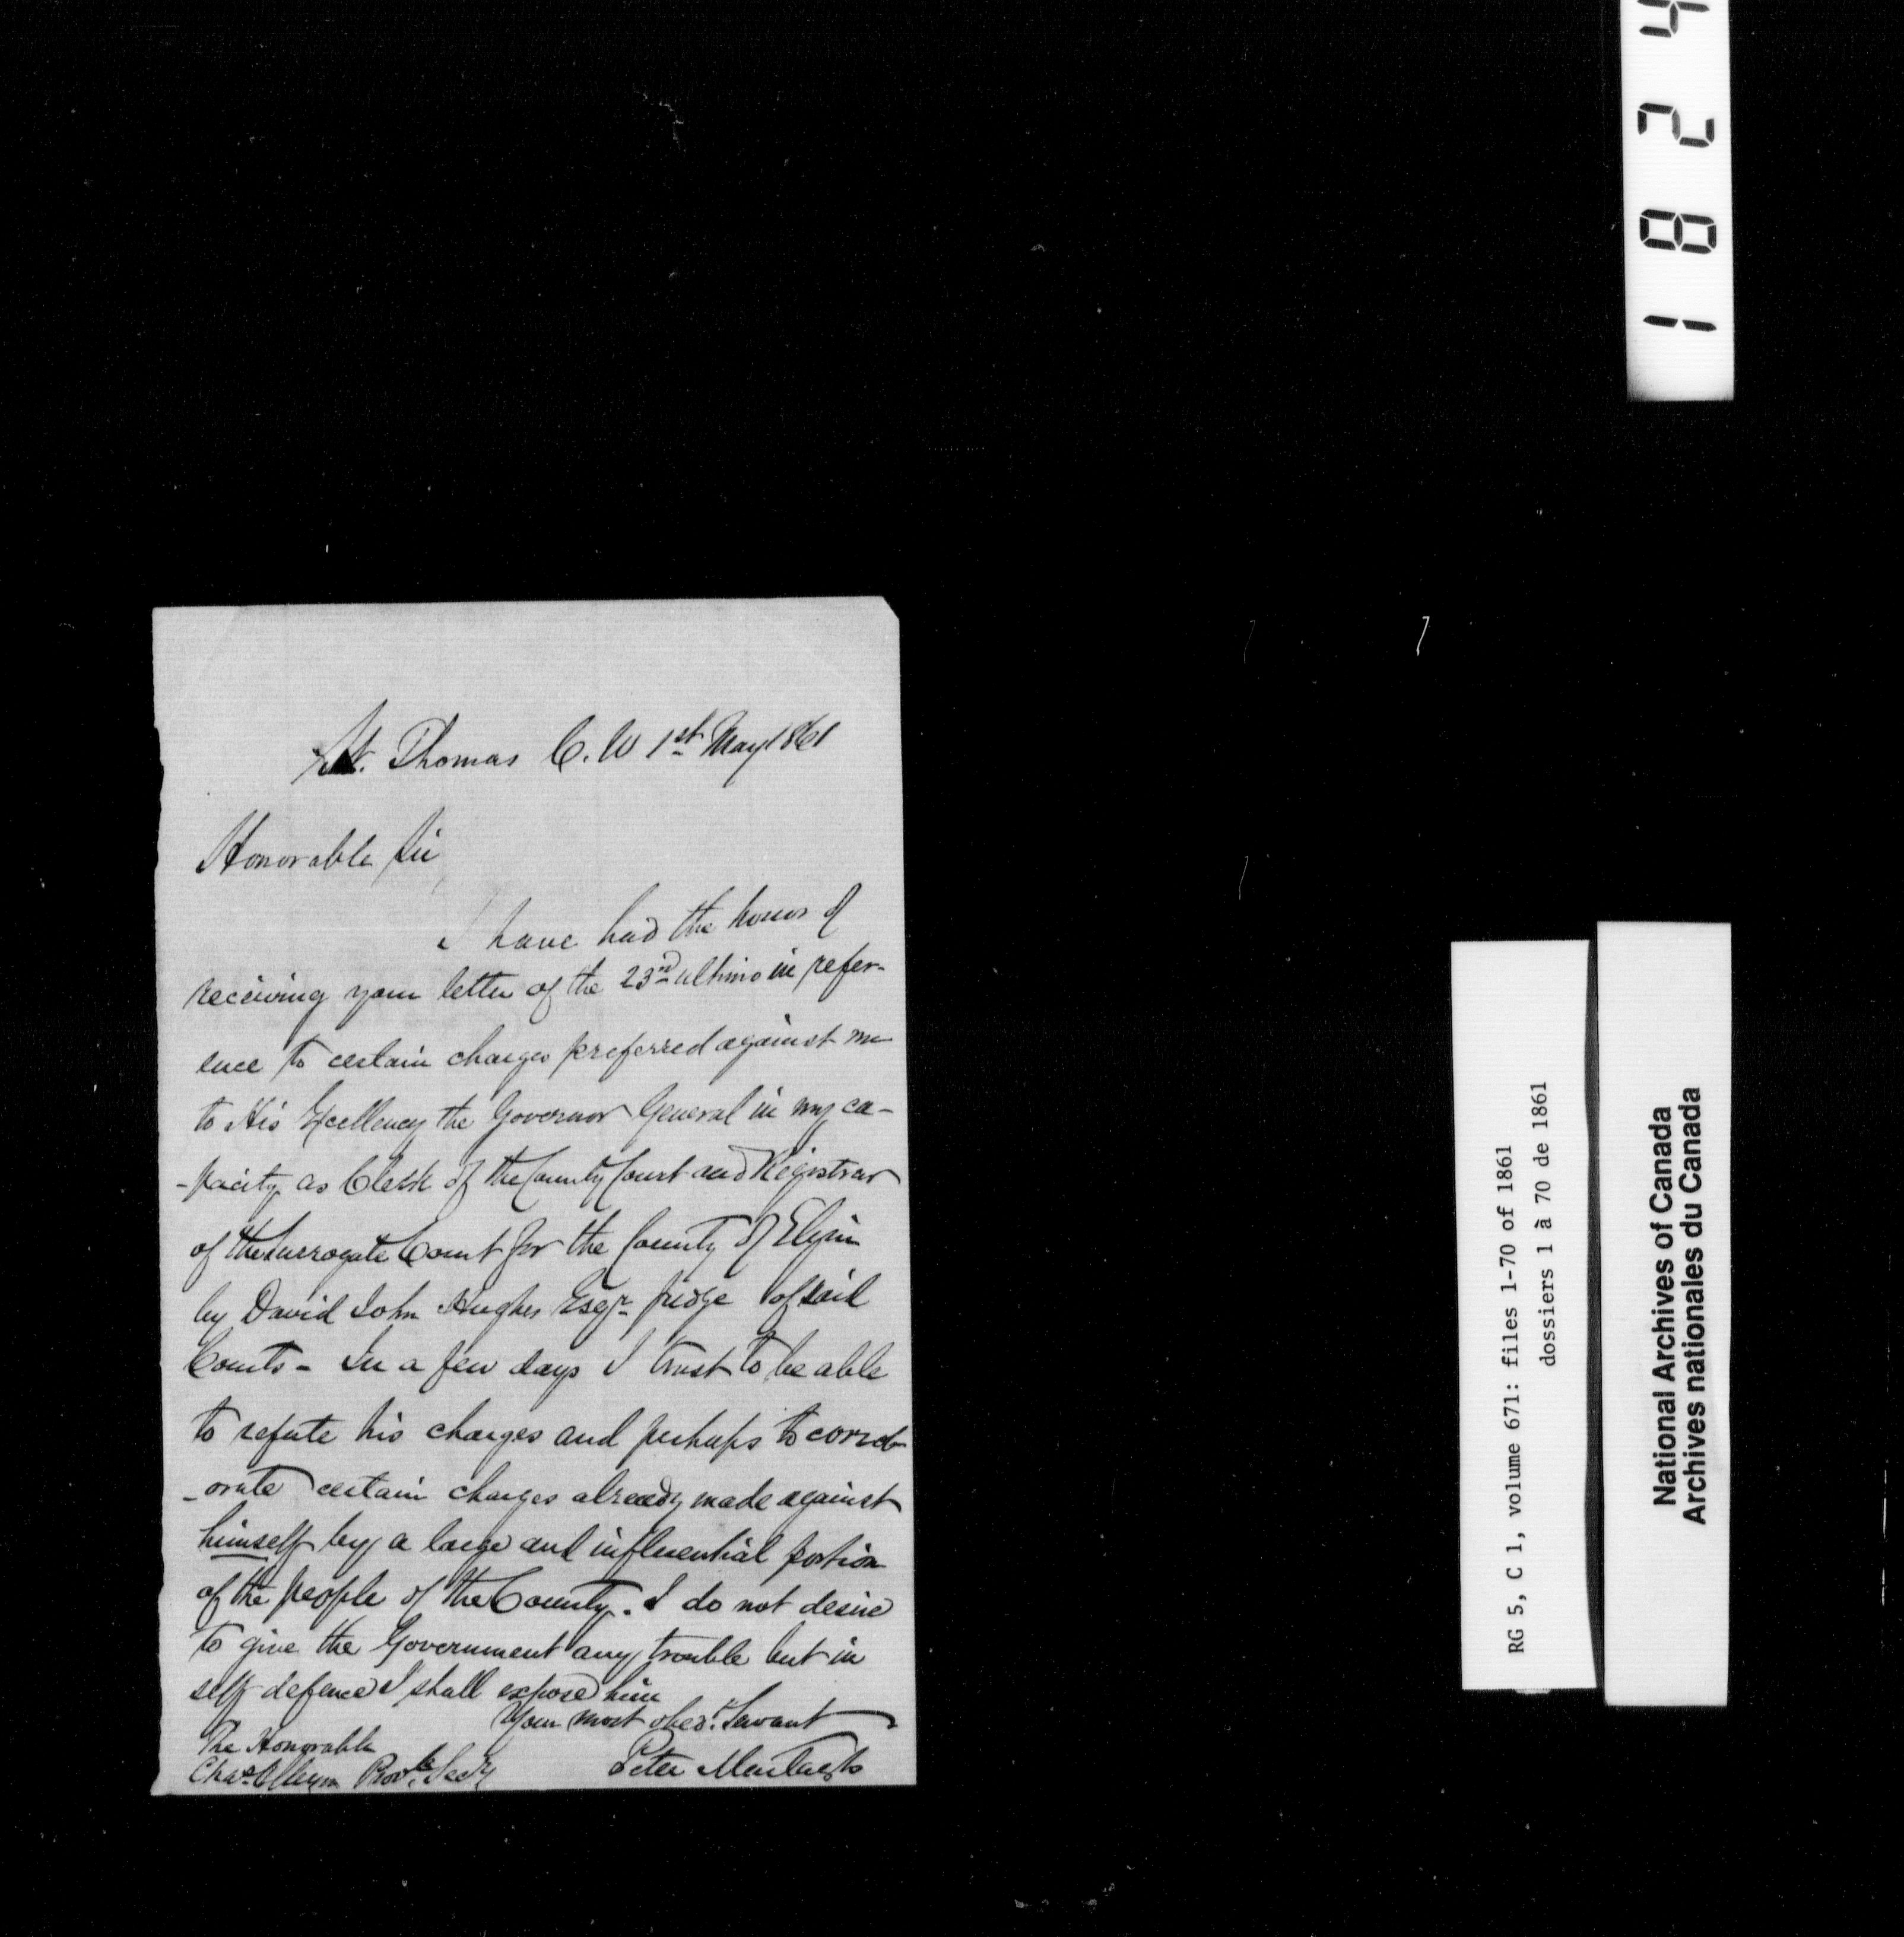 St. Thomas C. W 1st May 1861
Honorable Sir,
I have had the honor of
receiving your letter of the 23rd ultimo in refer-
ence to certain charges preferred against me
to His Excellency the Governor General in my ca-
-pacity as Clerk of the County Court and Registrar
of the Surrogate Court for the County of Elgin
by David John Hughes Esqr. judge of said
Courts - In a few days I trust to be able
to refute his charges and perhaps to corrob
-orate certain charges already made against
himself by a large and influential portion
of the people of the County. I do not desire
to give the Government any trouble but in
self defence I shall expose him
Your most obedt. Servant
Peter
The Honorable
Chas. Alleyn Provl. Secy
1 8 2 4
RG 5, C 1, volume 671: files 1-70 of 1861
dossiers 1 à 70 de 1861
National Archives of Canada
Archives nationales du Canada